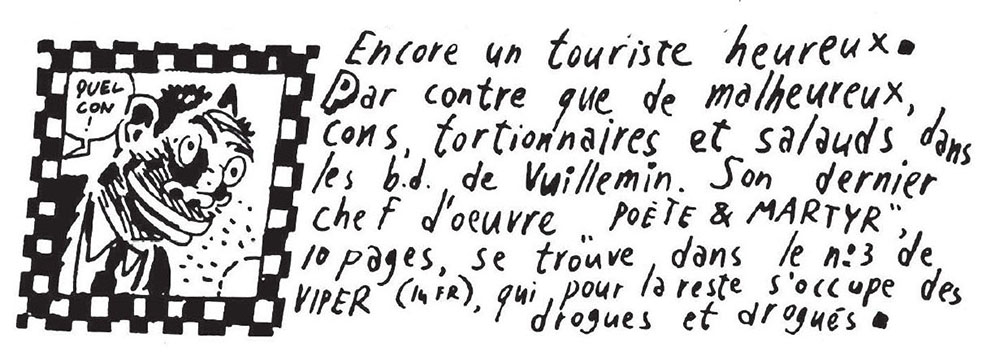 QUEL
CON
!
Encore un touriste heureux.
Par contre que de malheureux,
cons, tortionnaires et salauds, dans
les b.d. de Vuillemin. Son dernier
chef d'oeuvre "POÈTE & MARTYR",
10 pages, se trouve dans le no:3 de
VIPER (14 FR), qui, pour la reste s'occupe des
drogues et drogués.